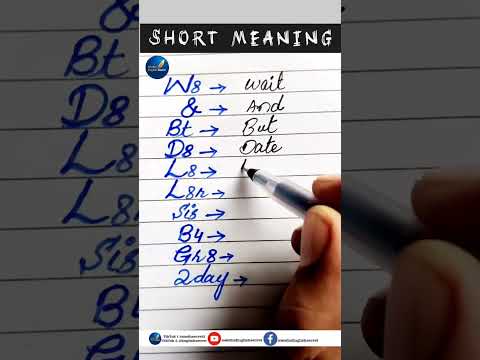 SHORT MEANING
W8 → Wait
& → And
Bt → But
D8 → Date
L8 →
L8r →
Sis →
B4 →
Gr8 →
2day →